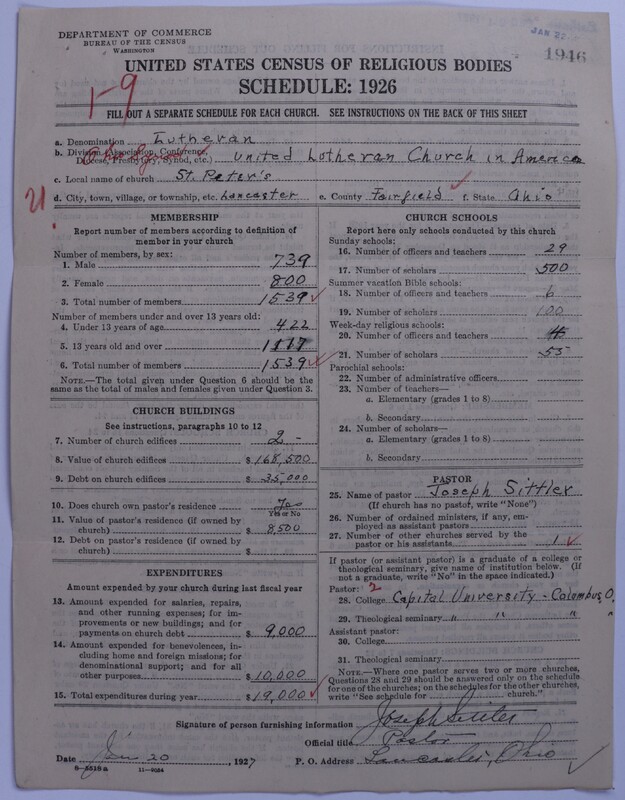 DEPARTMENT OF COMMERCE
BUREAU OF THE CENSUS
WASHINGTON
1946
UNITED STATES CENSUS OF RELIGIOUS BODIES
SCHEDULE: 1926
1-9
FILL OUT A SEPARATE SCHEDULE FOR EACH CHURCH. SEE INSTRUCTIONS ON THE BACK OF THIS SHEET
a. Denomination Lutheran
b. Division (Association, Conference,
Diocese, Presbytery, Synod, etc.) United Lotheran Church in America
Ohio Synod
c. Local name of church St. Peter's
21
d. City, town, village, or township, etc. Lancaster e. County Fairfield f. State Ohio
MEMBERSHIP
Report number of members according to definition of
member in your church
Number of members, by sex:
1. Male 739
2. Female 800
3. Total number of members 1539
Number of members under and over 13 years old:
4. Under 13 years of age 422
5. 13 years old and over 1117
6. Total number of members 1539
NOTE.—The total given under Question 6 should be
the same as the total of males and females given under Question 3.
CHURCH BUILDINGS
See instructions, paragraphs 10 to 12
7. Number of church edifices 2 -
8. Value of church edifices $168,500
9. Debt on church edifices $35,000
10. Does church own pastor's residence Yes
Yes or No
11. Value of pastor's residence (if owned by
church) $8,500
12. Debt on pastor's residence (if owned by
church) $
EXPENDITURES
Amount expended by your church during last fiscal year
13. Amount expended for salaries, repairs,
and other running expenses; for im-
provements or new buildings; and for
payments on church debt $9,000
14. Amount expended for benevolences, in-
cluding home and foreign missions; for
denominational support; and for all
other purposes $10,000
15. Total expenditures during year $19,000
CHURCH SCHOOLS
Report here only schools conducted by this church
Sunday schools:
16. Number of officers and teachers 29
17. Number of scholars 500
Summer vacation Bible schools:
18. Number of officers and teachers 6
19. Number of scholars 100
Week-day religious schools:
20. Number of officers and teachers 4
21. Number of scholars 55
Parochial schools:
22. Number of administrative officers
23. Number of teachers—
a. Elementary (grades 1 to 8)
b. Secondary
24. Number of scholars—
a. Elementary (grades 1 to 8)
b. Secondary
PASTOR
25. Name of pastor Joseph Sittler
(If church has no pastor, write "None")
26. Number of ordained ministers, if any, em-
ployed as assistant pastors
27. Number of other churches served by the
pastor or his assistants 1
If pastor (or assistant pastor) is a graduate of a college or
theological seminary, give name of institution below. (If
not a graduate, write "No" in the space indicated.)
Pastor: 2
28. College Capital University - Colombus O.
29. Theological seminary " " "
Assistant pastor:
30. College
31. Theological seminary
NOTE.—Where one pastor serves two or more churches,
Questions 28 and 29 should be answered only on the schedule
for one of the churches; on the schedules for the other churches,
write "See schedule for church."
Signature of person furnishing information Joseph Sittler
Official title Pastor
Date Jan 20, 1927 P. O. Address Lancaster, Ohio